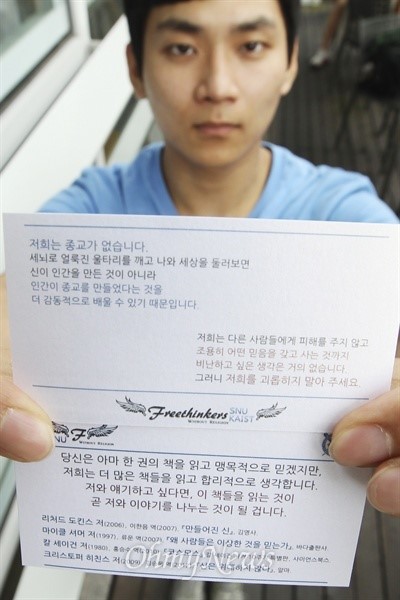 저희는 종교가 없습니다.
세뇌로 얼룩진 울타리를 깨고 나와 세상을 둘러보면
신이 인간을 만든 것이 아니라
인간이 종교를 만들었다는 것을
더 감동적으로 배울 수 있기 때문입니다.
저희는 다른 사람들에게 피해를 주지 않고
조용히 어떤 믿음을 갖고 사는 것까지
비난하고 싶은 생각은 거의 없습니다.
그러니 저희를 괴롭히지 말아 주세요.
Freethinkers SNU KAIST
WITHOUT RELIGION
NU F
WITHOUT RELIGION
당신은 아마 한 권의 책을 읽고 맹목적으로 믿겠지만,
저희는 더 많은 책들을 읽고 합리적으로 생각합니다.
저와 얘기하고 싶다면, 이 책들을 읽는 것이
곧 저와 이야기를 나누는 것이 될 겁니다.
리처드 도킨스 저(2006), 이한음 역(2007), 『만들어진 신』, 김영사
마이클 셔머 저(1997), 류운 역(2007), 『왜 사람들은 이상한 것을 믿는가』, 바다출판사
칼 세이건 저(1980), 홍승수 『코스모스』 특별판, 사이언스북스
크리스토퍼 히친스 저 『신은 위대하지 않다』, 알마
OhmyNews